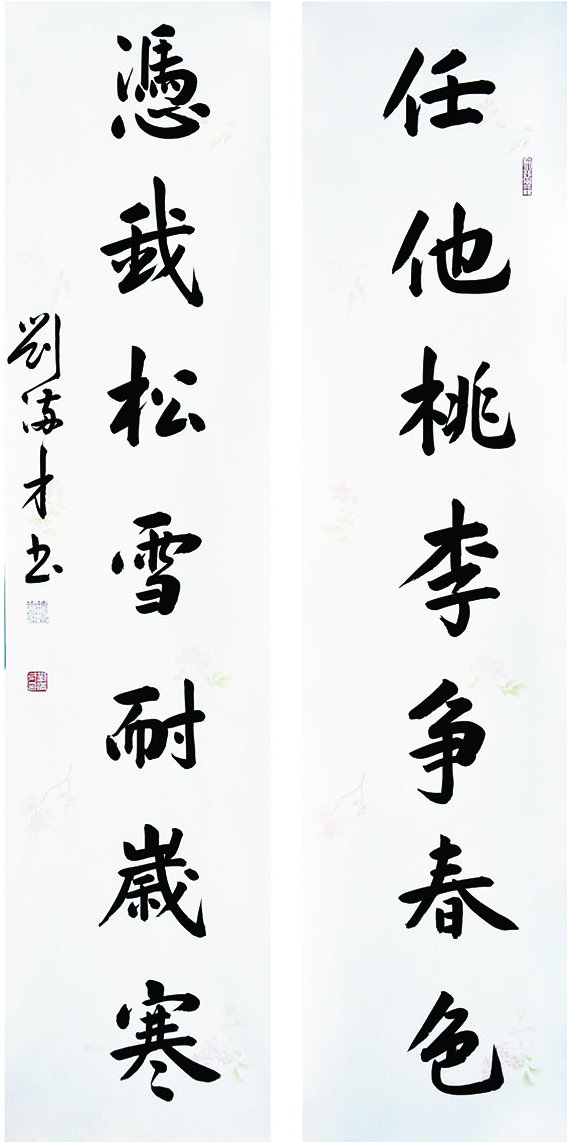 任他桃李争春色
憑我松雪耐歲寒
劉滿才书